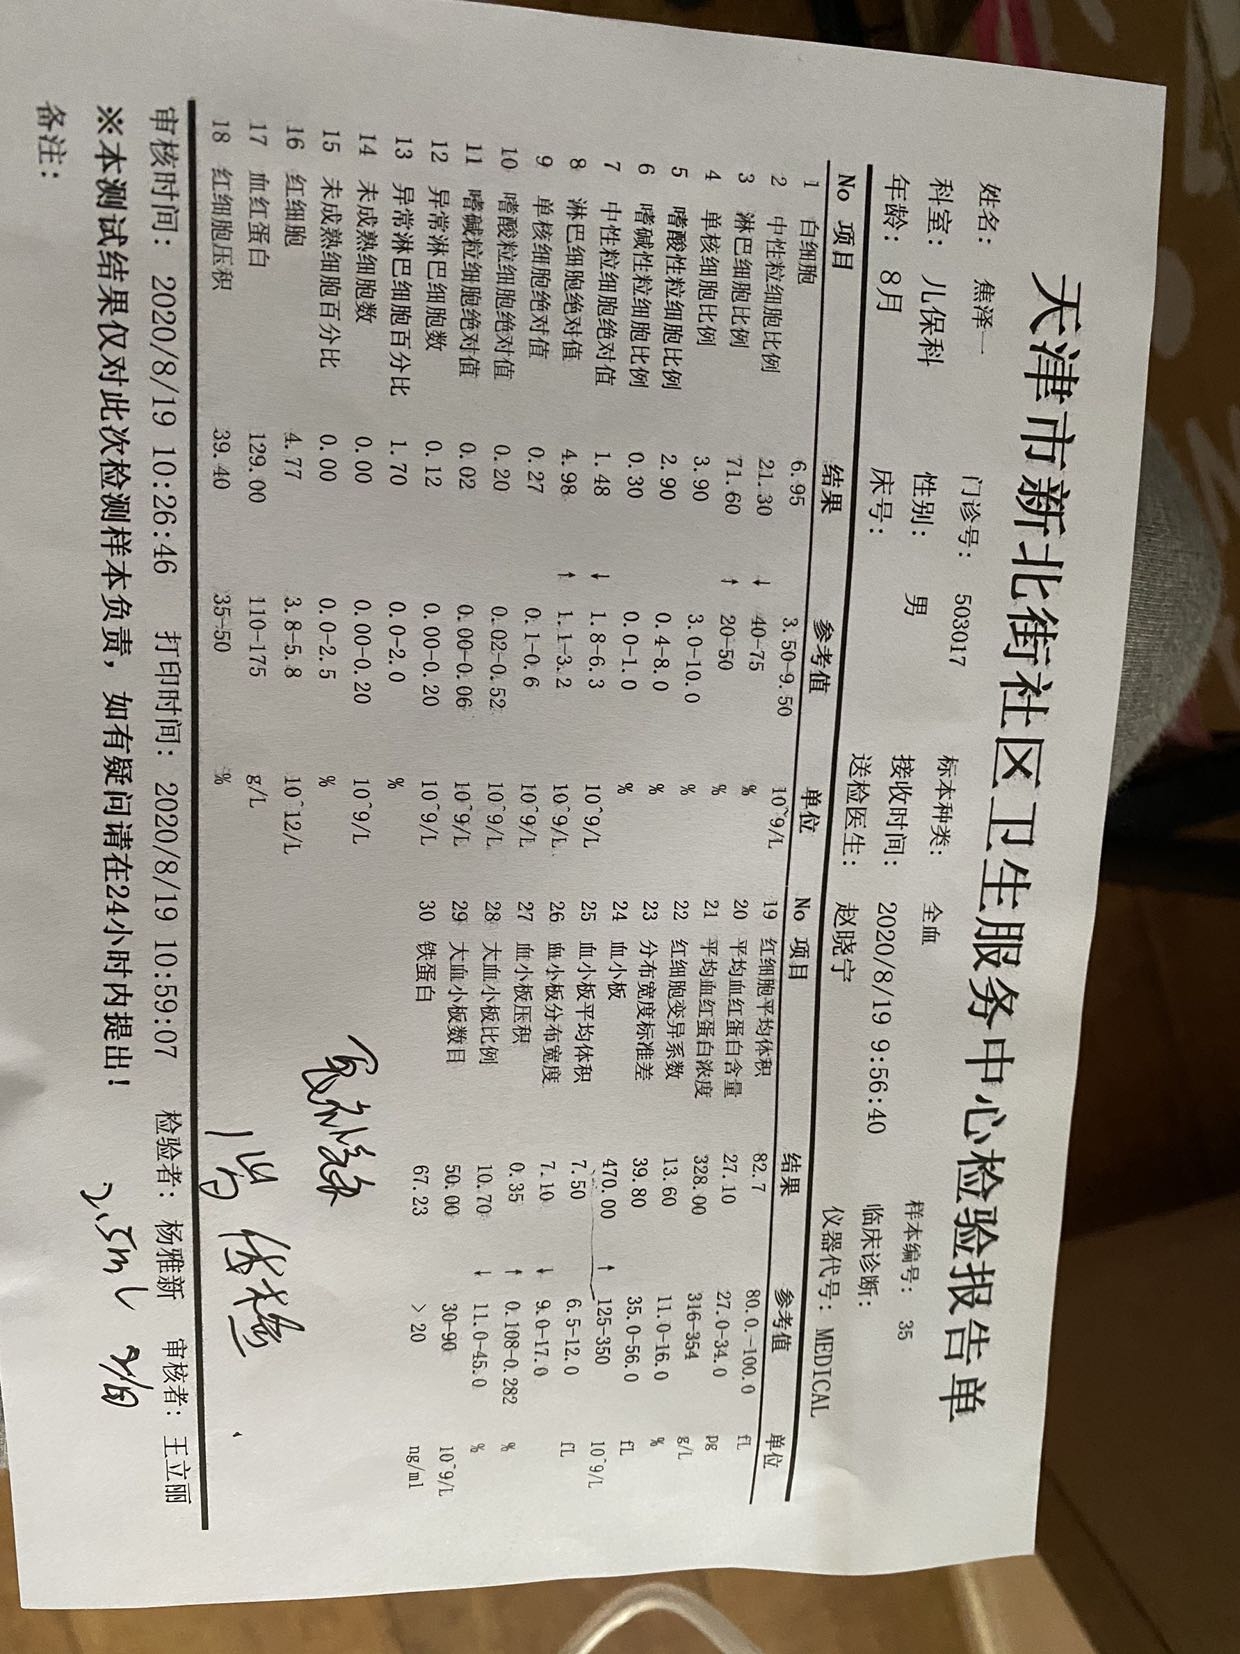 天津市新北街社区卫生服务中心检验报告单
姓名: 焦泽一 门诊号: 503017 标本种类: 全血 样本编号: 35
科室: 儿保科 性别: 男 接收时间: 2020/8/19 9:56:40 临床诊断:
年龄: 8月 床号: 送检医生: 赵晓宁 仪器代号: MEDICAL
No 项目 结果 参考值 单位 No 项目 结果 参考值 单位
1 白细胞 6.95 3.50-9.50 10^9/L 19 红细胞平均体积 82.7 80.0-100.0 fL
2 中性粒细胞比例 21.30 ↓ 40-75 % 20 平均血红蛋白含量 27.10 27.0-34.0 pg
3 淋巴细胞比例 71.60 ↑ 20-50 % 21 平均血红蛋白浓度 328.00 316-354 g/L
4 单核细胞比例 3.90 3.0-10.0 % 22 红细胞变异系数 13.60 11.0-16.0 %
5 嗜酸性粒细胞比例 2.90 0.4-8.0 % 23 分布宽度标准差 39.80 35.0-56.0 fL
6 嗜碱性粒细胞比例 0.30 0.0-1.0 % 24 血小板 470.00 ↑ 125-350 10^9/L
7 中性粒细胞绝对值 1.48 ↓ 1.8-6.3 10^9/L 25 血小板平均体积 7.50 6.5-12.0 fL
8 淋巴细胞绝对值 4.98 ↑ 1.1-3.2 10^9/L 26 血小板分布宽度 7.10 ↓ 9.0-17.0
9 单核细胞绝对值 0.27 0.1-0.6 10^9/L 27 血小板压积 0.35 ↑ 0.108-0.282 %
10 嗜酸粒细胞绝对值 0.20 0.02-0.52 10^9/L 28 大血小板比例 10.70 ↓ 11.0-45.0 %
11 嗜碱粒细胞绝对值 0.02 0.00-0.06 10^9/L 29 大血小板数目 50.00 30-90 10^9/L
12 异常淋巴细胞数 0.12 0.00-0.20 10^9/L 30 铁蛋白 67.23 >20 ng/ml
13 异常淋巴细胞百分比 1.70 0.0-2.0 %
14 未成熟细胞数 0.00 0.00-0.20 10^9/L
15 未成熟细胞百分比 0.00 0.0-2.5 %
16 红细胞 4.77 3.8-5.8 10^12/L
17 血红蛋白 129.00 110-175 g/L
18 红细胞压积 39.40 35-50 %
审核时间: 2020/8/19 10:26:46 打印时间: 2020/8/19 10:59:07 检验者: 杨雅新 审核者: 王立丽
※本测试结果仅对此次检测样本负责，如有疑问请在24小时内提出!
2.5ml
备注: